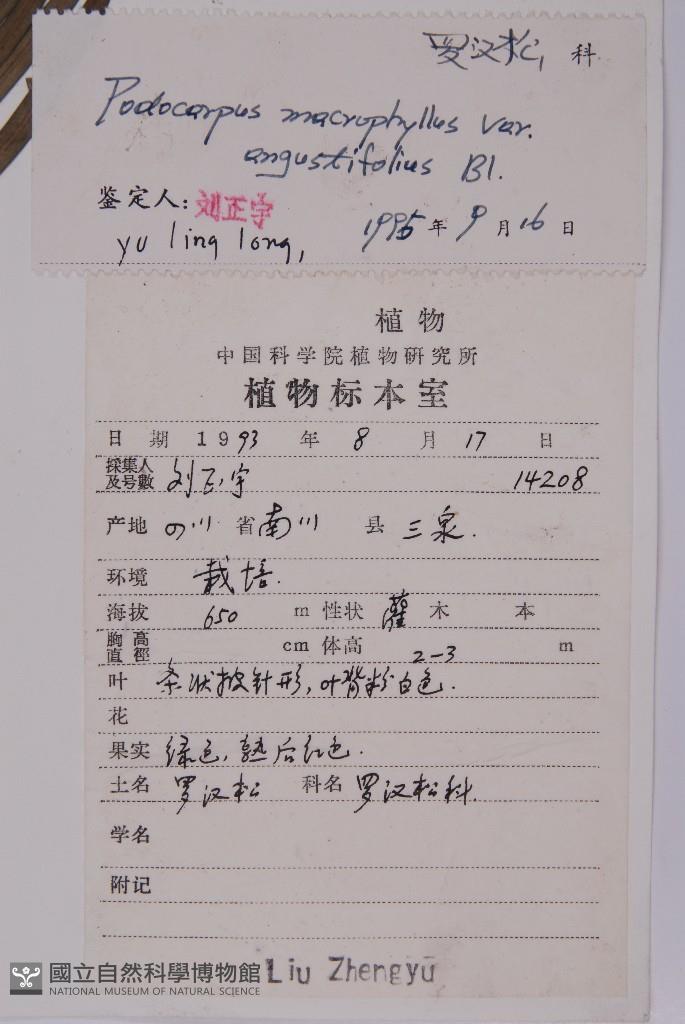 罗汉松 科
Podocarpus macrophyllus var.
angustifolius Bl.
鉴定人：刘正宇
yu ling long,
1995 年 9 月 16 日
植物
中国科学院植物研究所
植物标本室
日 期 1993 年 8 月 17 日
採集人及号數 刘正宇 14208
产地 四川 省 南川 县 三泉.
环境 栽培.
海拔 650 m 性状 灌 木 本
胸高直徑 cm 体高 2-3 m
叶 条状披针形，叶背粉白色.
花
果实 绿色，熟后红色.
土名 罗汉松 科名 罗汉松科.
学名
附记
Liu Zhengyu
國立自然科學博物館
NATIONAL MUSEUM OF NATURAL SCIENCE